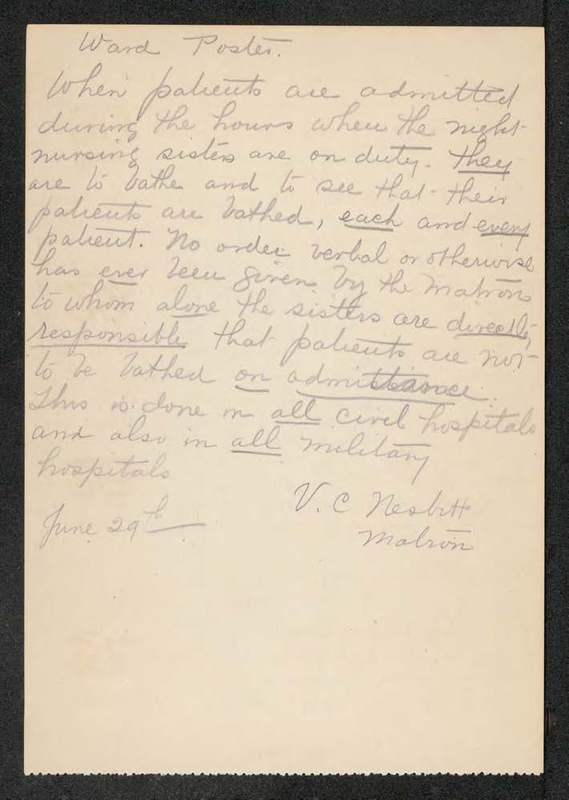 Ward Poster.
When patients are admitted
during the hours when the night
nursing sisters are on duty. they
are to bathe and to see that their
patients are bathed, each and every
patient. No order verbal or otherwise
has ever been given by the Matron
to whom alone the sisters are directly
responsible that patients are not
to be bathed on admittance.
This is done in all civil hospitals
and also in all military
hospitals
V. C Nesbitt
Matron
June 29th